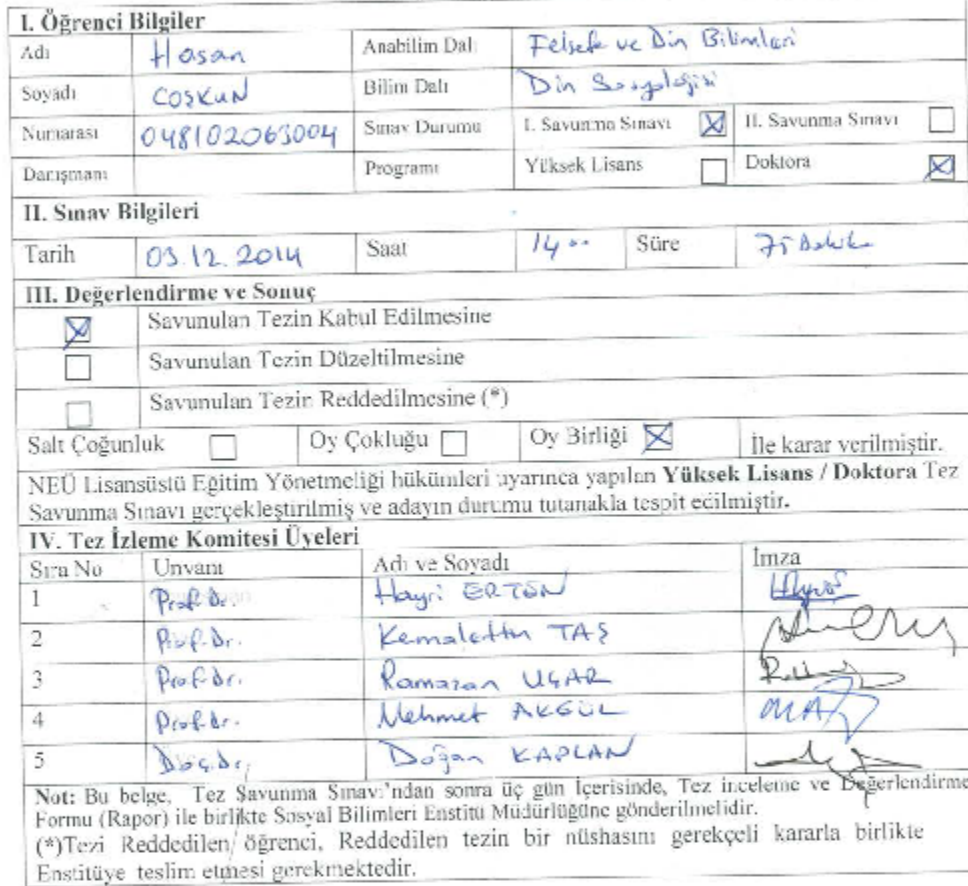 I. Öğrenci Bilgiler
Adı Hasan Anabilim Dalı Felsefe ve Din Bilimleri
Soyadı COŞKUN Bilim Dalı Din Sosyolojisi
Numarası 048102063004 Sınav Durumu I. Savunma Sınavı ☒ II. Savunma Sınavı ☐
Danışmanı Programı Yüksek Lisans ☐ Doktora ☒
II. Sınav Bilgileri
Tarih 03.12.2014 Saat 14 00 Süre 75 Dakika
III. Değerlendirme ve Sonuç
☒ Savunulan Tezin Kabul Edilmesine
☐ Savunulan Tezin Düzeltilmesine
☐ Savunulan Tezin Reddedilmesine (*)
Salt Çoğunluk ☐ Oy Çokluğu ☐ Oy Birliği ☒ İle karar verilmiştir.
NEÜ Lisansüstü Eğitim Yönetmeliği hükümleri uyarınca yapılan Yüksek Lisans / Doktora Tez
Savunma Sınavı gerçekleştirilmiş ve adayın durumu tutanakla tespit edilmiştir.
IV. Tez İzleme Komitesi Üyeleri
Sıra No Unvanı Adı ve Soyadı İmza
1 Prof.Dr. Hayri ERTEN
2 Prof.Dr. Kemalettin TAŞ
3 Prof.Dr. Ramazan UÇAR
4 Prof.Dr. Mehmet AKGÜL
5 Doç.Dr. Doğan KAPLAN
Not: Bu belge, Tez Savunma Sınavı'ndan sonra üç gün İçerisinde, Tez inceleme ve Değerlendirme
Formu (Rapor) ile birlikte Sosyal Bilimleri Enstitü Müdürlüğüne gönderilmelidir.
(*)Tezi Reddedilen öğrenci, Reddedilen tezin bir nüshasını gerekçeli kararla birlikte
Enstitüye teslim etmesi gerekmektedir.